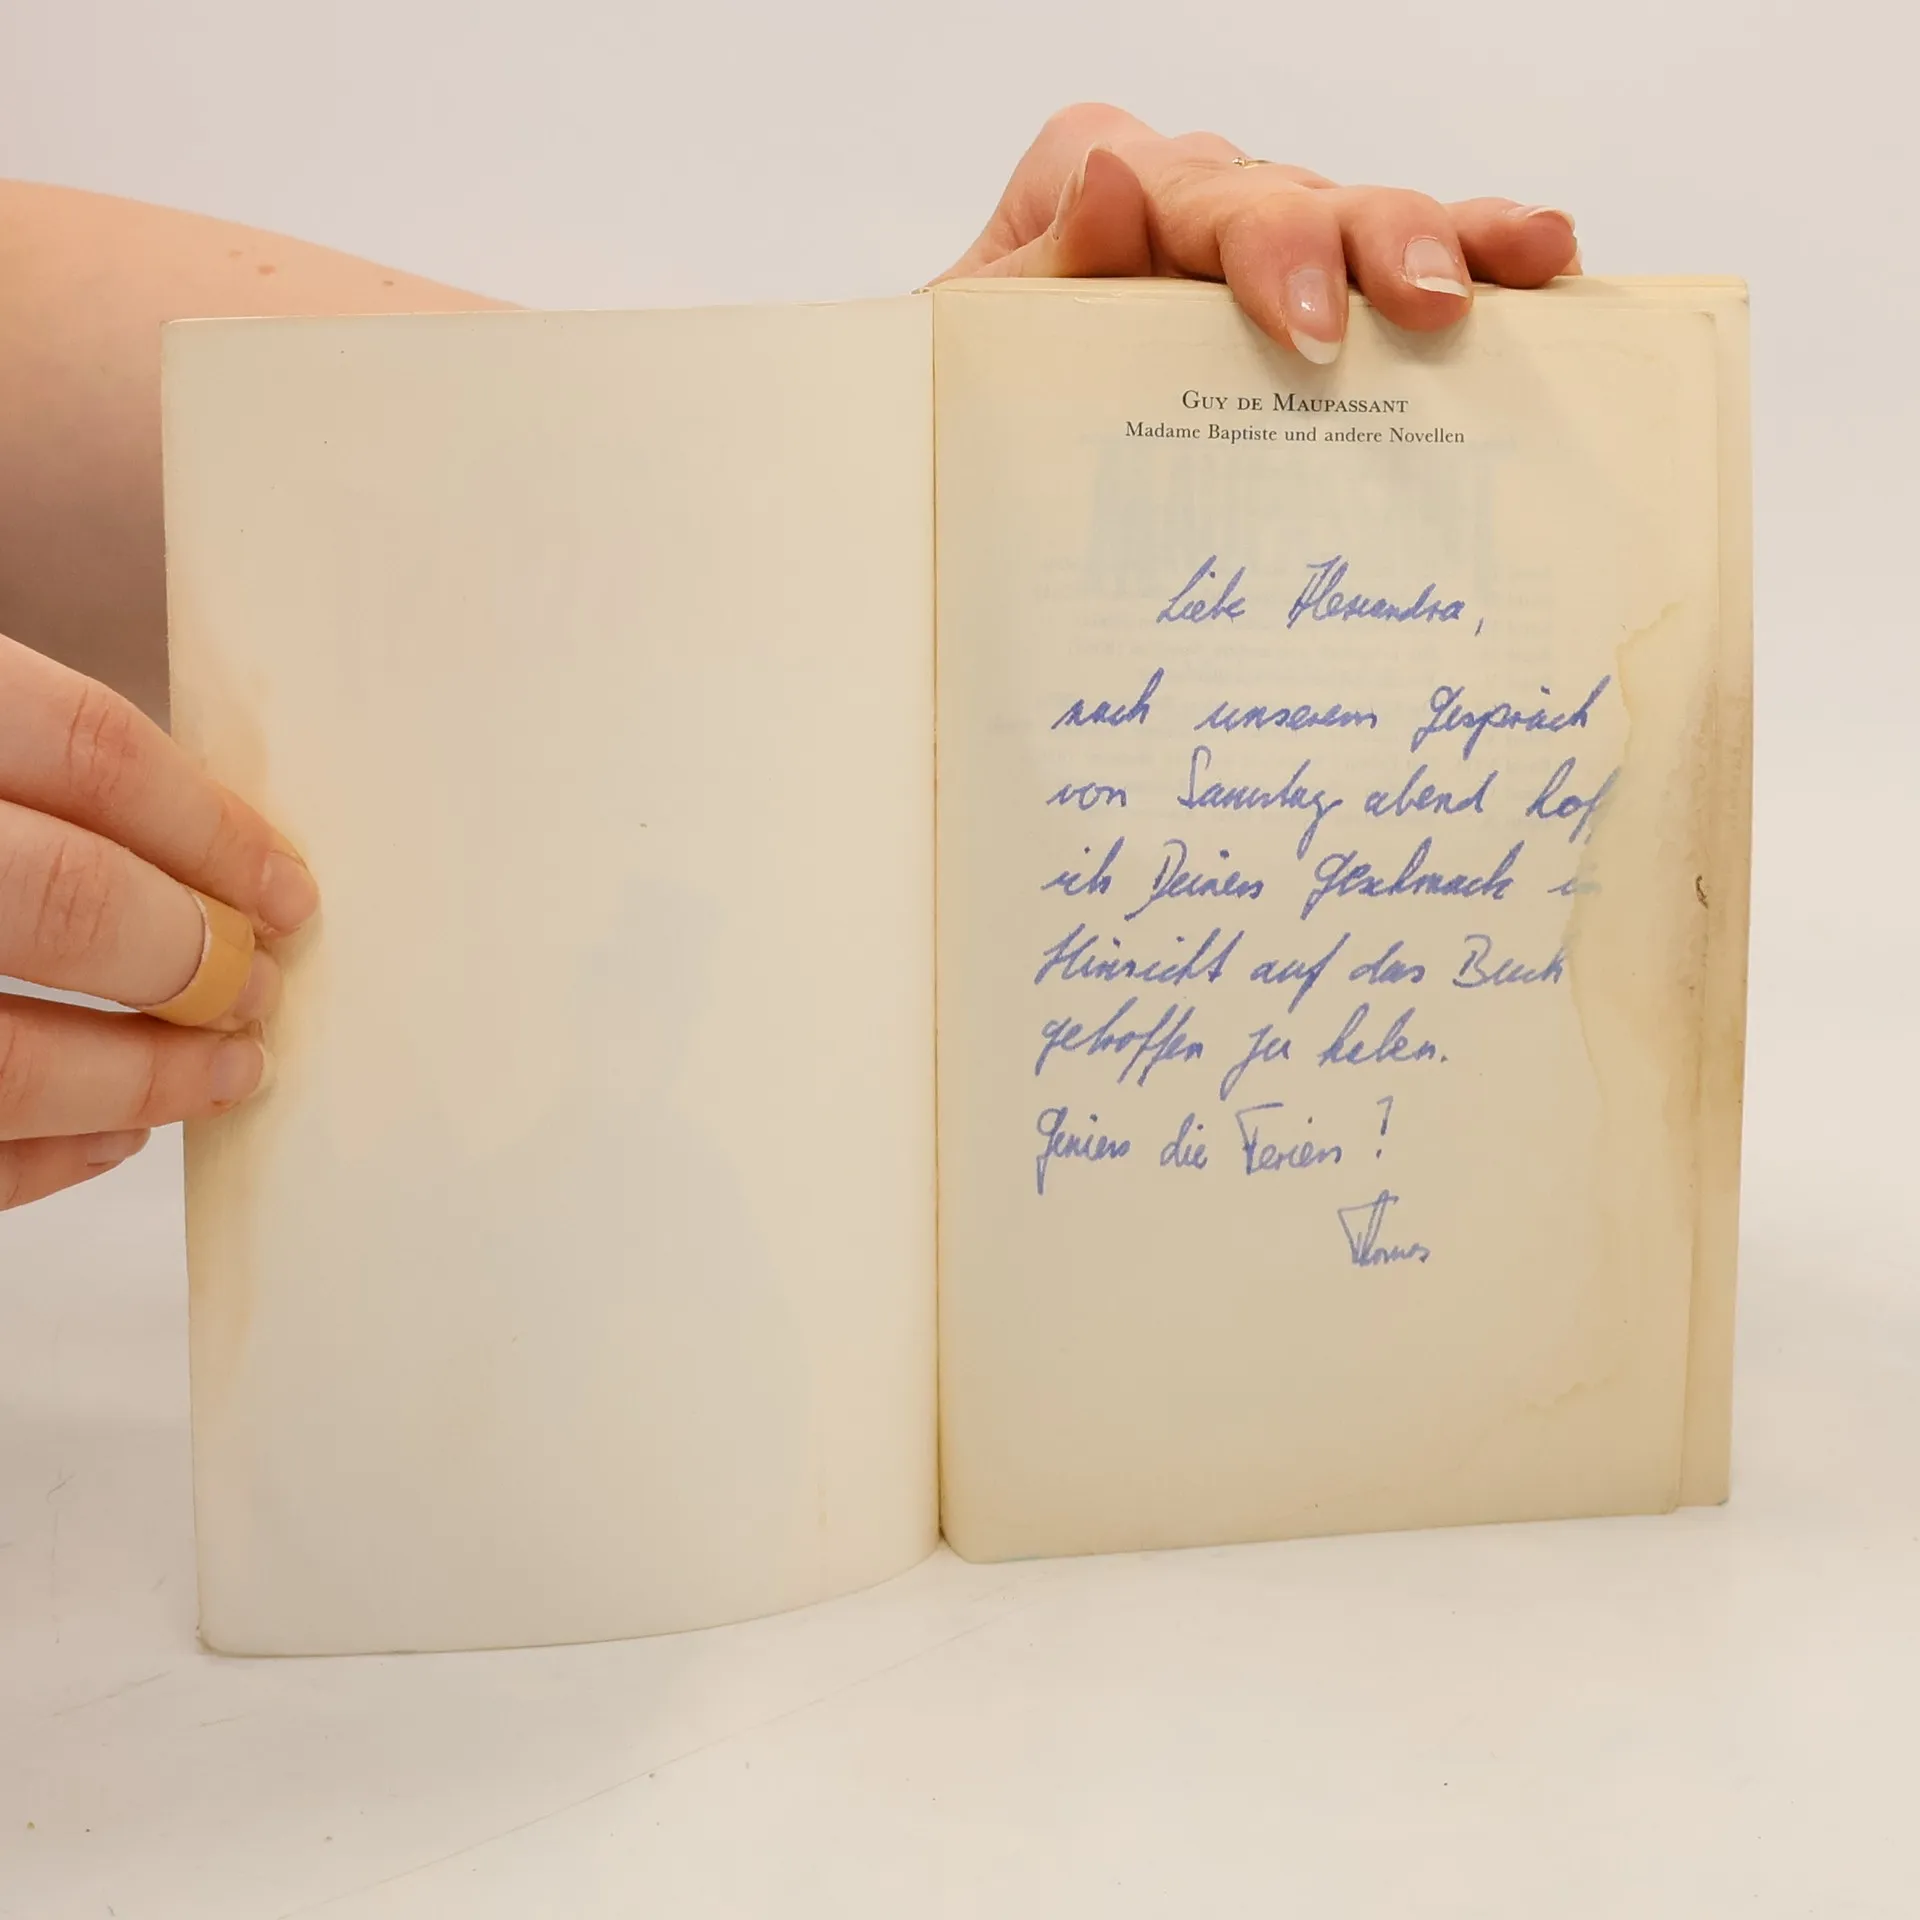 GUY DE MAUPASSANT
Madame Baptiste und andere Novellen
Liebe Alexandra,
nach unserem Gespräch
von Samstag abend hof
ich Deinen Geschmack in
Hinsicht auf das Buch
getroffen zu haben.
Genieß die Ferien!
Thomas